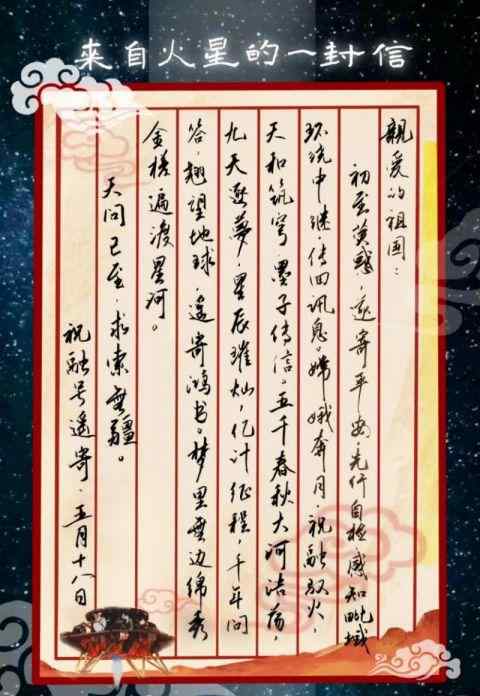 來自火星的一封信
親爱的祖国：
初至荧惑，遥寄平安，先行自检感知域
环绕中继，传回讯息。嫦娥奔月，祝融驭火，
天和筑穹，墨子传信。五千春秋大河浩荡，
九天逐夢，星辰璀灿，亿计征程，千年问
答，翘望地球，遥寄鸿书。梦里無边绵秀
金槎遍渡星河。
天问已至，求索無疆。
祝融号遥寄，五月十八日